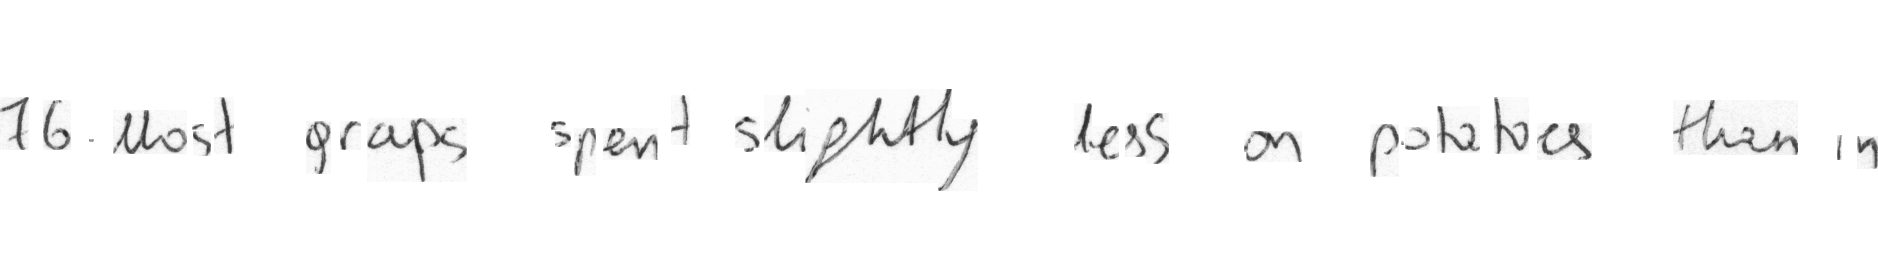 76. Most graps spent slightly less on potatoes than in